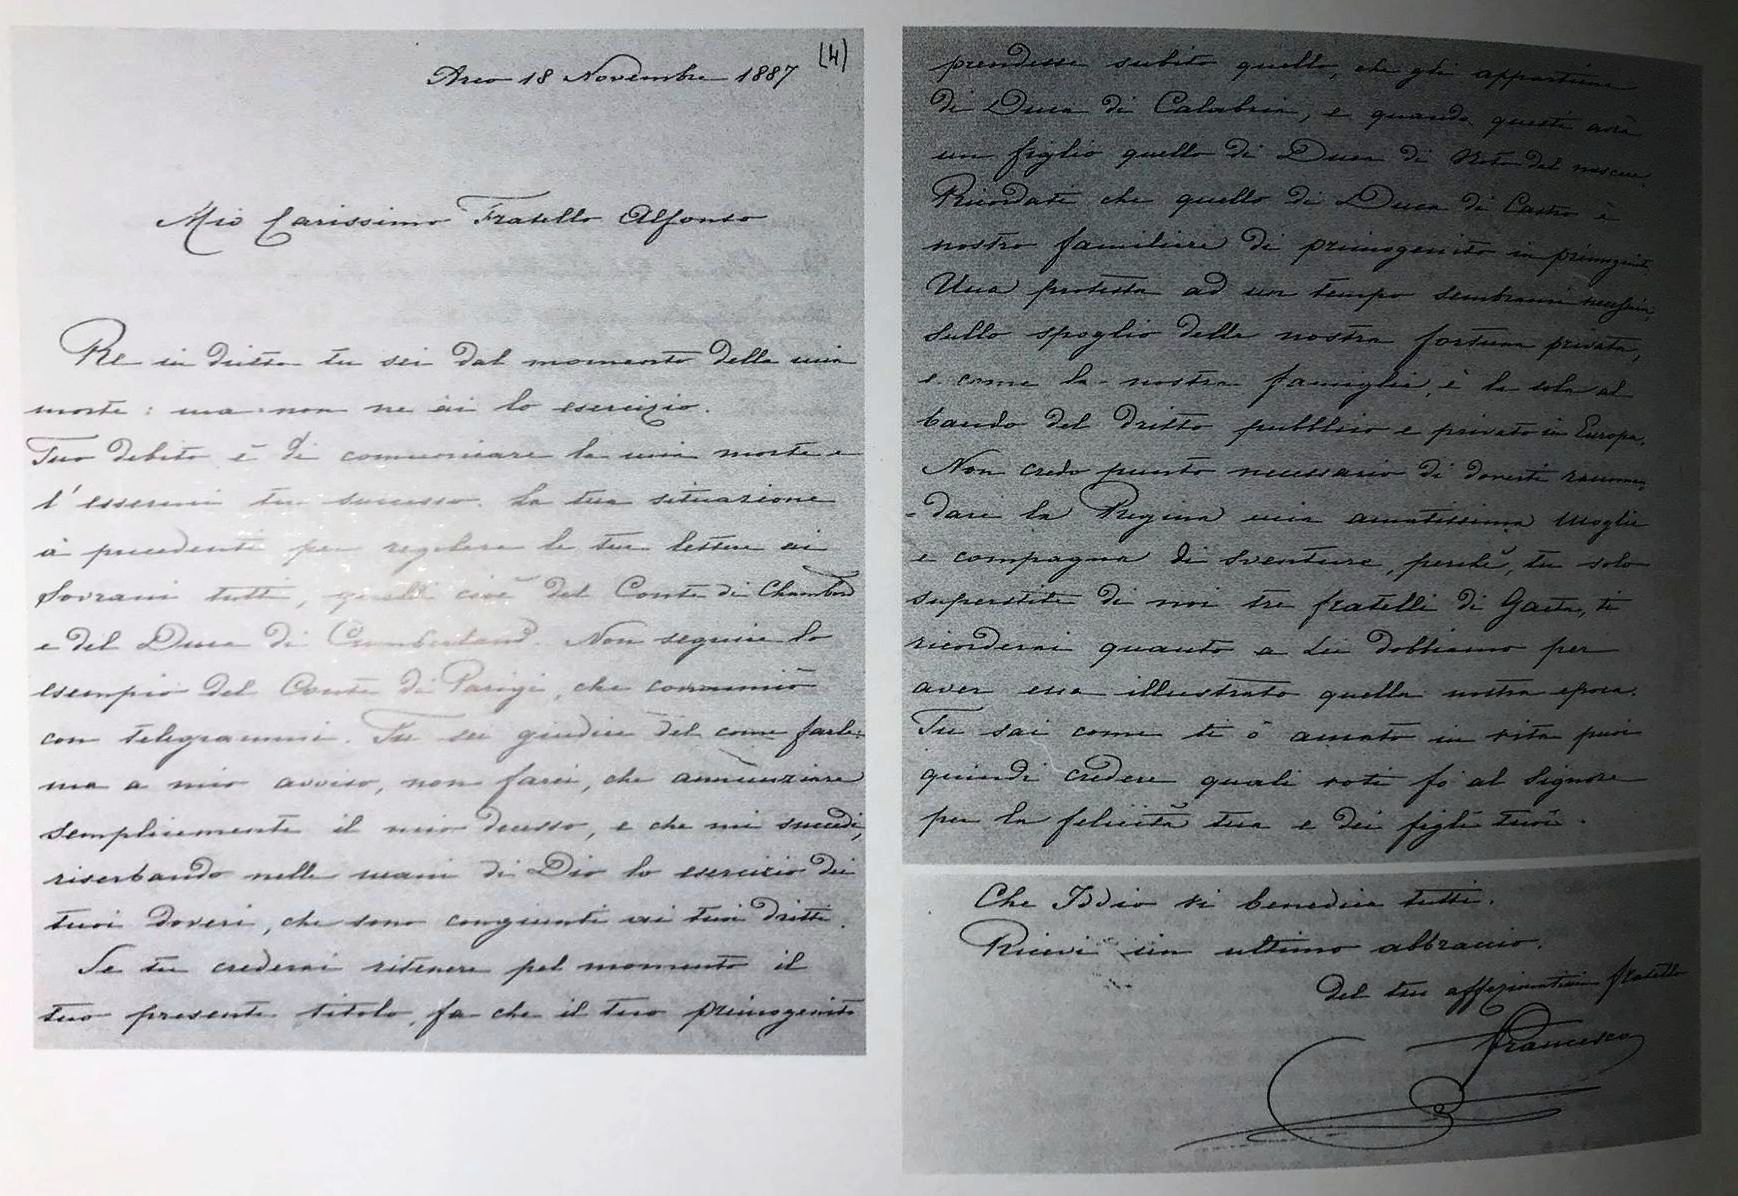 (4)
Arco 18 Novembre 1887
Mio Carissimo Fratello Alfonso
Re in dritto tu sei dal momento della mia
morte: ma non ne ài lo esercizio.
Tuo debito è di comunicare la mia morte e
l'essermi tu successo. La tua situazione
à precedenti per regolare le tue lettere ai
Sovrani tutti, quelli cioè del Conte di Chambord
e del Duca di Cumberland. Non seguire lo
esempio del Conte di Parigi, che comunicò
con telegrammi. Tu sei giudice del come farlo:
ma a mio avviso, non farei, che annunziare
semplicemente il mio decesso, e che mi succedi,
riserbando nelle mani di Dio lo esercizio dei
tuoi doveri, che sono congiunti ai tuoi dritti.
Se tu crederai ritenere pel momento il
tuo presente titolo, fa che il tuo primogenito
prendesse subito quello, che gli appartiene
di Duca di Calabria, e quando questi avrà
un figlio quello di Duca di Noto dal nascere.
Ricordati che quello di Duca di Castro è
nostro familiare di primogenito in primogenito
Una protesta ad un tempo sembrami necessaria
sullo spoglio della nostra fortuna privata,
e come la nostra famiglia, è la sola al
bando del dritto pubblico e privato in Europa.
Non credo punto necessario di doverti raccoman
-dare la Regina mia amatissima Moglie
e compagna di sventure, perchè, tu solo
superstite di noi tre fratelli di Gaeta, ti
ricorderai quanto a Lei dobbiamo per
aver essa illustrato quella nostra epoca.
Tu sai come ti ò amato in vita puoi
quindi credere quali voti fo al Signore
per la felicità tua e dei figli tuoi.
Che Iddio vi benedica tutti.
Ricevi un ultimo abbraccio.
Del tuo affezionatissimo fratello
Francesco